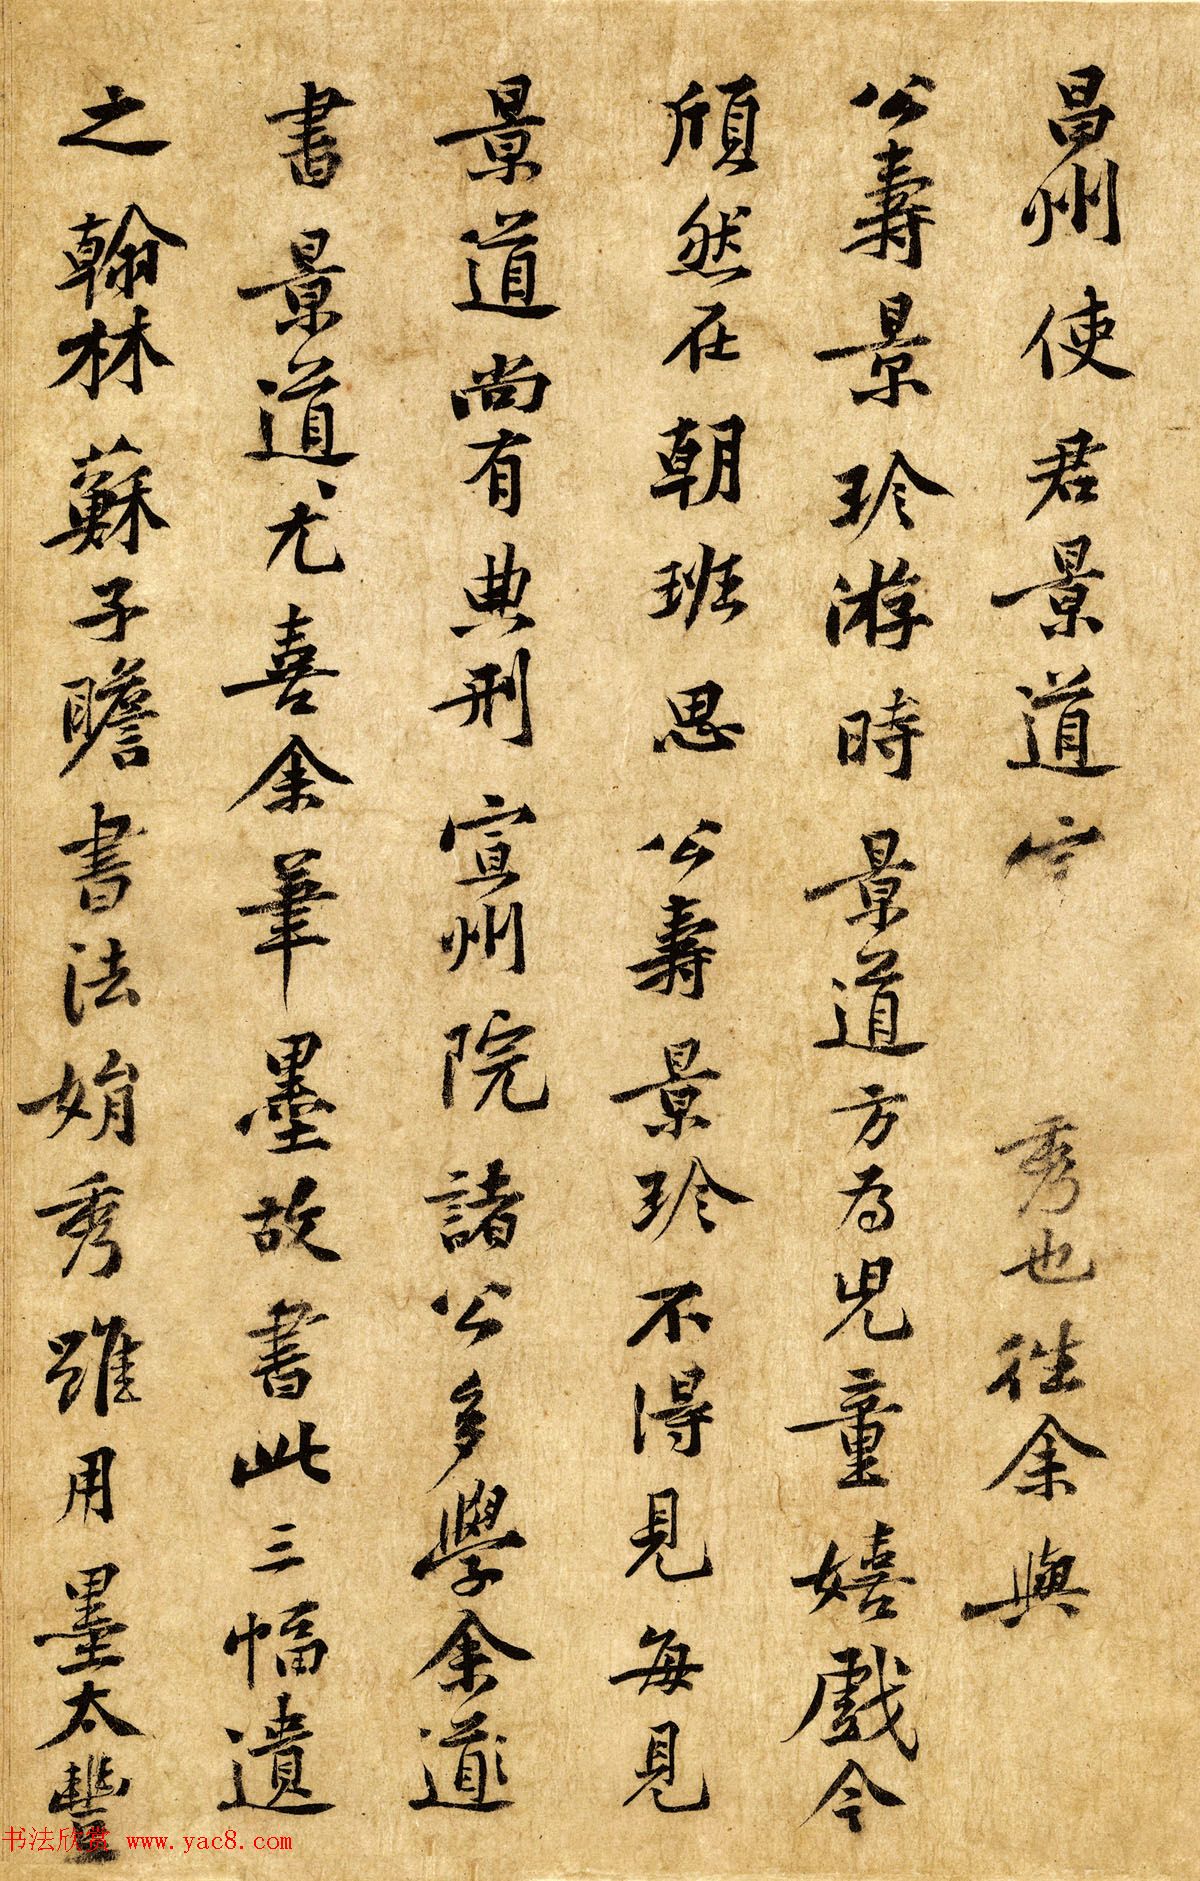 昌州使君景道宗秀也往余與
公壽景珍游時景道方為兒童嬉戲今
頎然在朝班思公壽景珍不得見每見
景道尚有典刑宣州院諸公多學余道
書景道尤喜余筆墨故書此三幅遺
之翰林蘇子瞻書法娟秀雖用墨太豐
书法欣赏 www.yac8.com